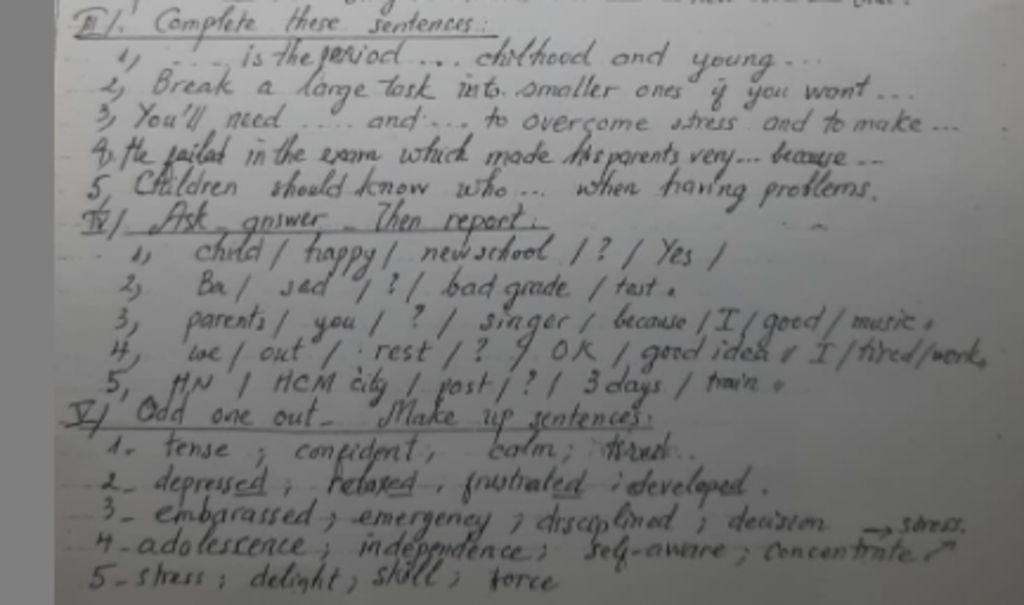 III/. Complete these sentences:
1, .... is the period ... chilhood and young ...
2, Break a large task into smaller ones if you want ...
3, You'll need .... and .... to overcome stress and to make ...
4, He failed in the exam which made his parents very... because ...
5, Children should know who ... when having problems.
IV/ Ask answer Then report:
1, child / happy / new school / ? / Yes /
2, Ba / sad / ? / bad grade / test.
3, parents / you / ? / singer / because / I / good / music.
4, we / out / rest / ? / OK / good idea / I / tired / work.
5, HN / HCM city / post / ? / 3 days / train.
V/ Odd one out - Make up sentences:
1- tense ; confident ; calm ;
2- depressed ; relaxed ; frustrated ; developed.
3- embarassed ; emergency ; disciplined ; decision → stress.
4- adolescence ; independence ; self-aware ; concentrate
5- stress ; delight ; skill ; force